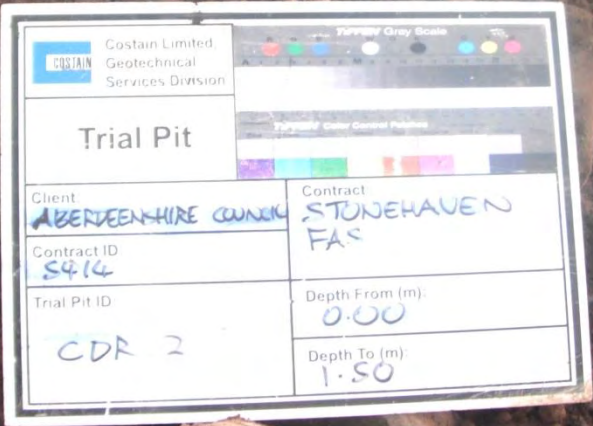 COSTAIN
Costain Limited
Geotechnical
Services Division
TIFFEN Gray Scale
Trial Pit
TIFFEN Color Control Patches
Client:
ABERDEENSHIRE COUNCIL
Contract:
STONEHAVEN
FAS
Contract ID
S414
Trial Pit ID:
CDR 2
Depth From (m):
0.00
Depth To (m):
1.50